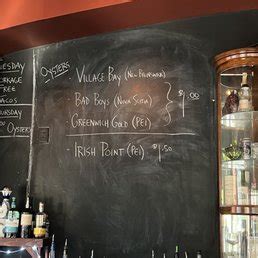 OYSTERS
VILLAGE BAY (NEW BRUNSWICK)
- BAD BOYS (NOVA SCOTIA)
- GREENWICH GOLD (PEI)
$1.00
- IRISH POINT (PEI) $1.50
TUESDAY
FREE
TACOS
OYSTERS